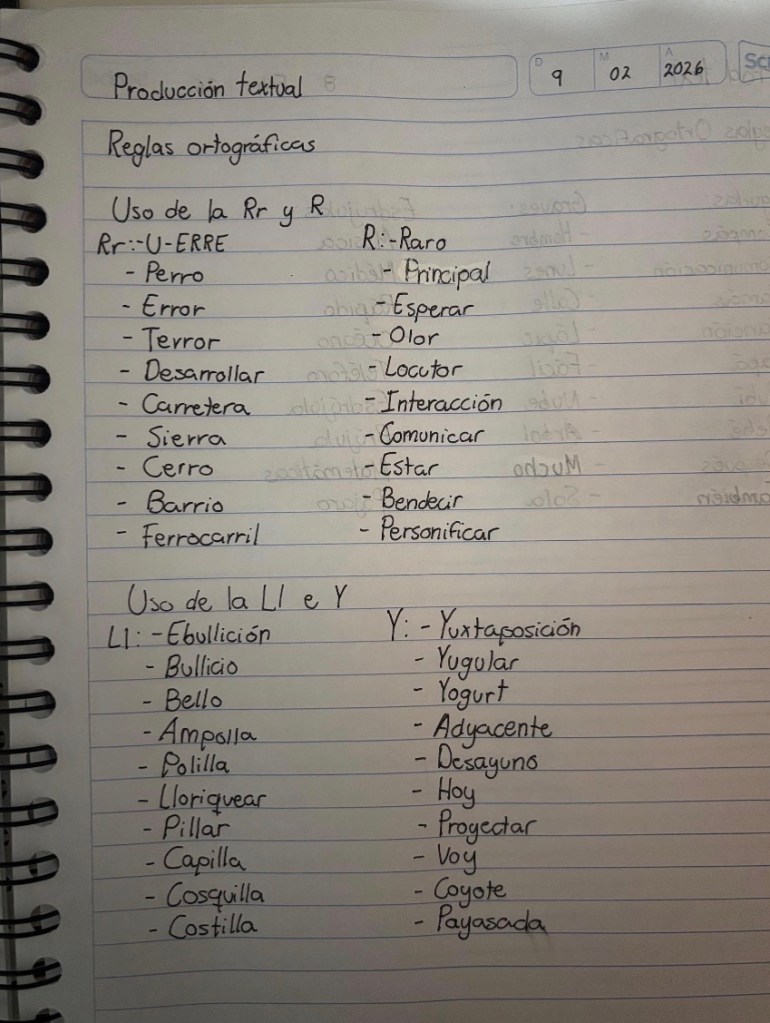 Producción textual
D 9 M 02 A 2026
Reglas ortográficas
Uso de la Rr y R
Rr:-U-ERRE R:-Raro
- Perro - Principal
- Error - Esperar
- Terror - Olor
- Desarrollar - Locutor
- Carretera - Interacción
- Sierra - Comunicar
- Cerro - Estar
- Barrio - Bendecir
- Ferrocarril - Personificar
Uso de la Ll e Y
Ll: -Ebullición Y: - Yuxtaposición
- Bullicio - Yugular
- Bello - Yogurt
- Ampolla - Adyacente
- Polilla - Desayuno
- Lloriquear - Hoy
- Pillar - Proyectar
- Capilla - Voy
- Cosquilla - Coyote
- Costilla - Payasada